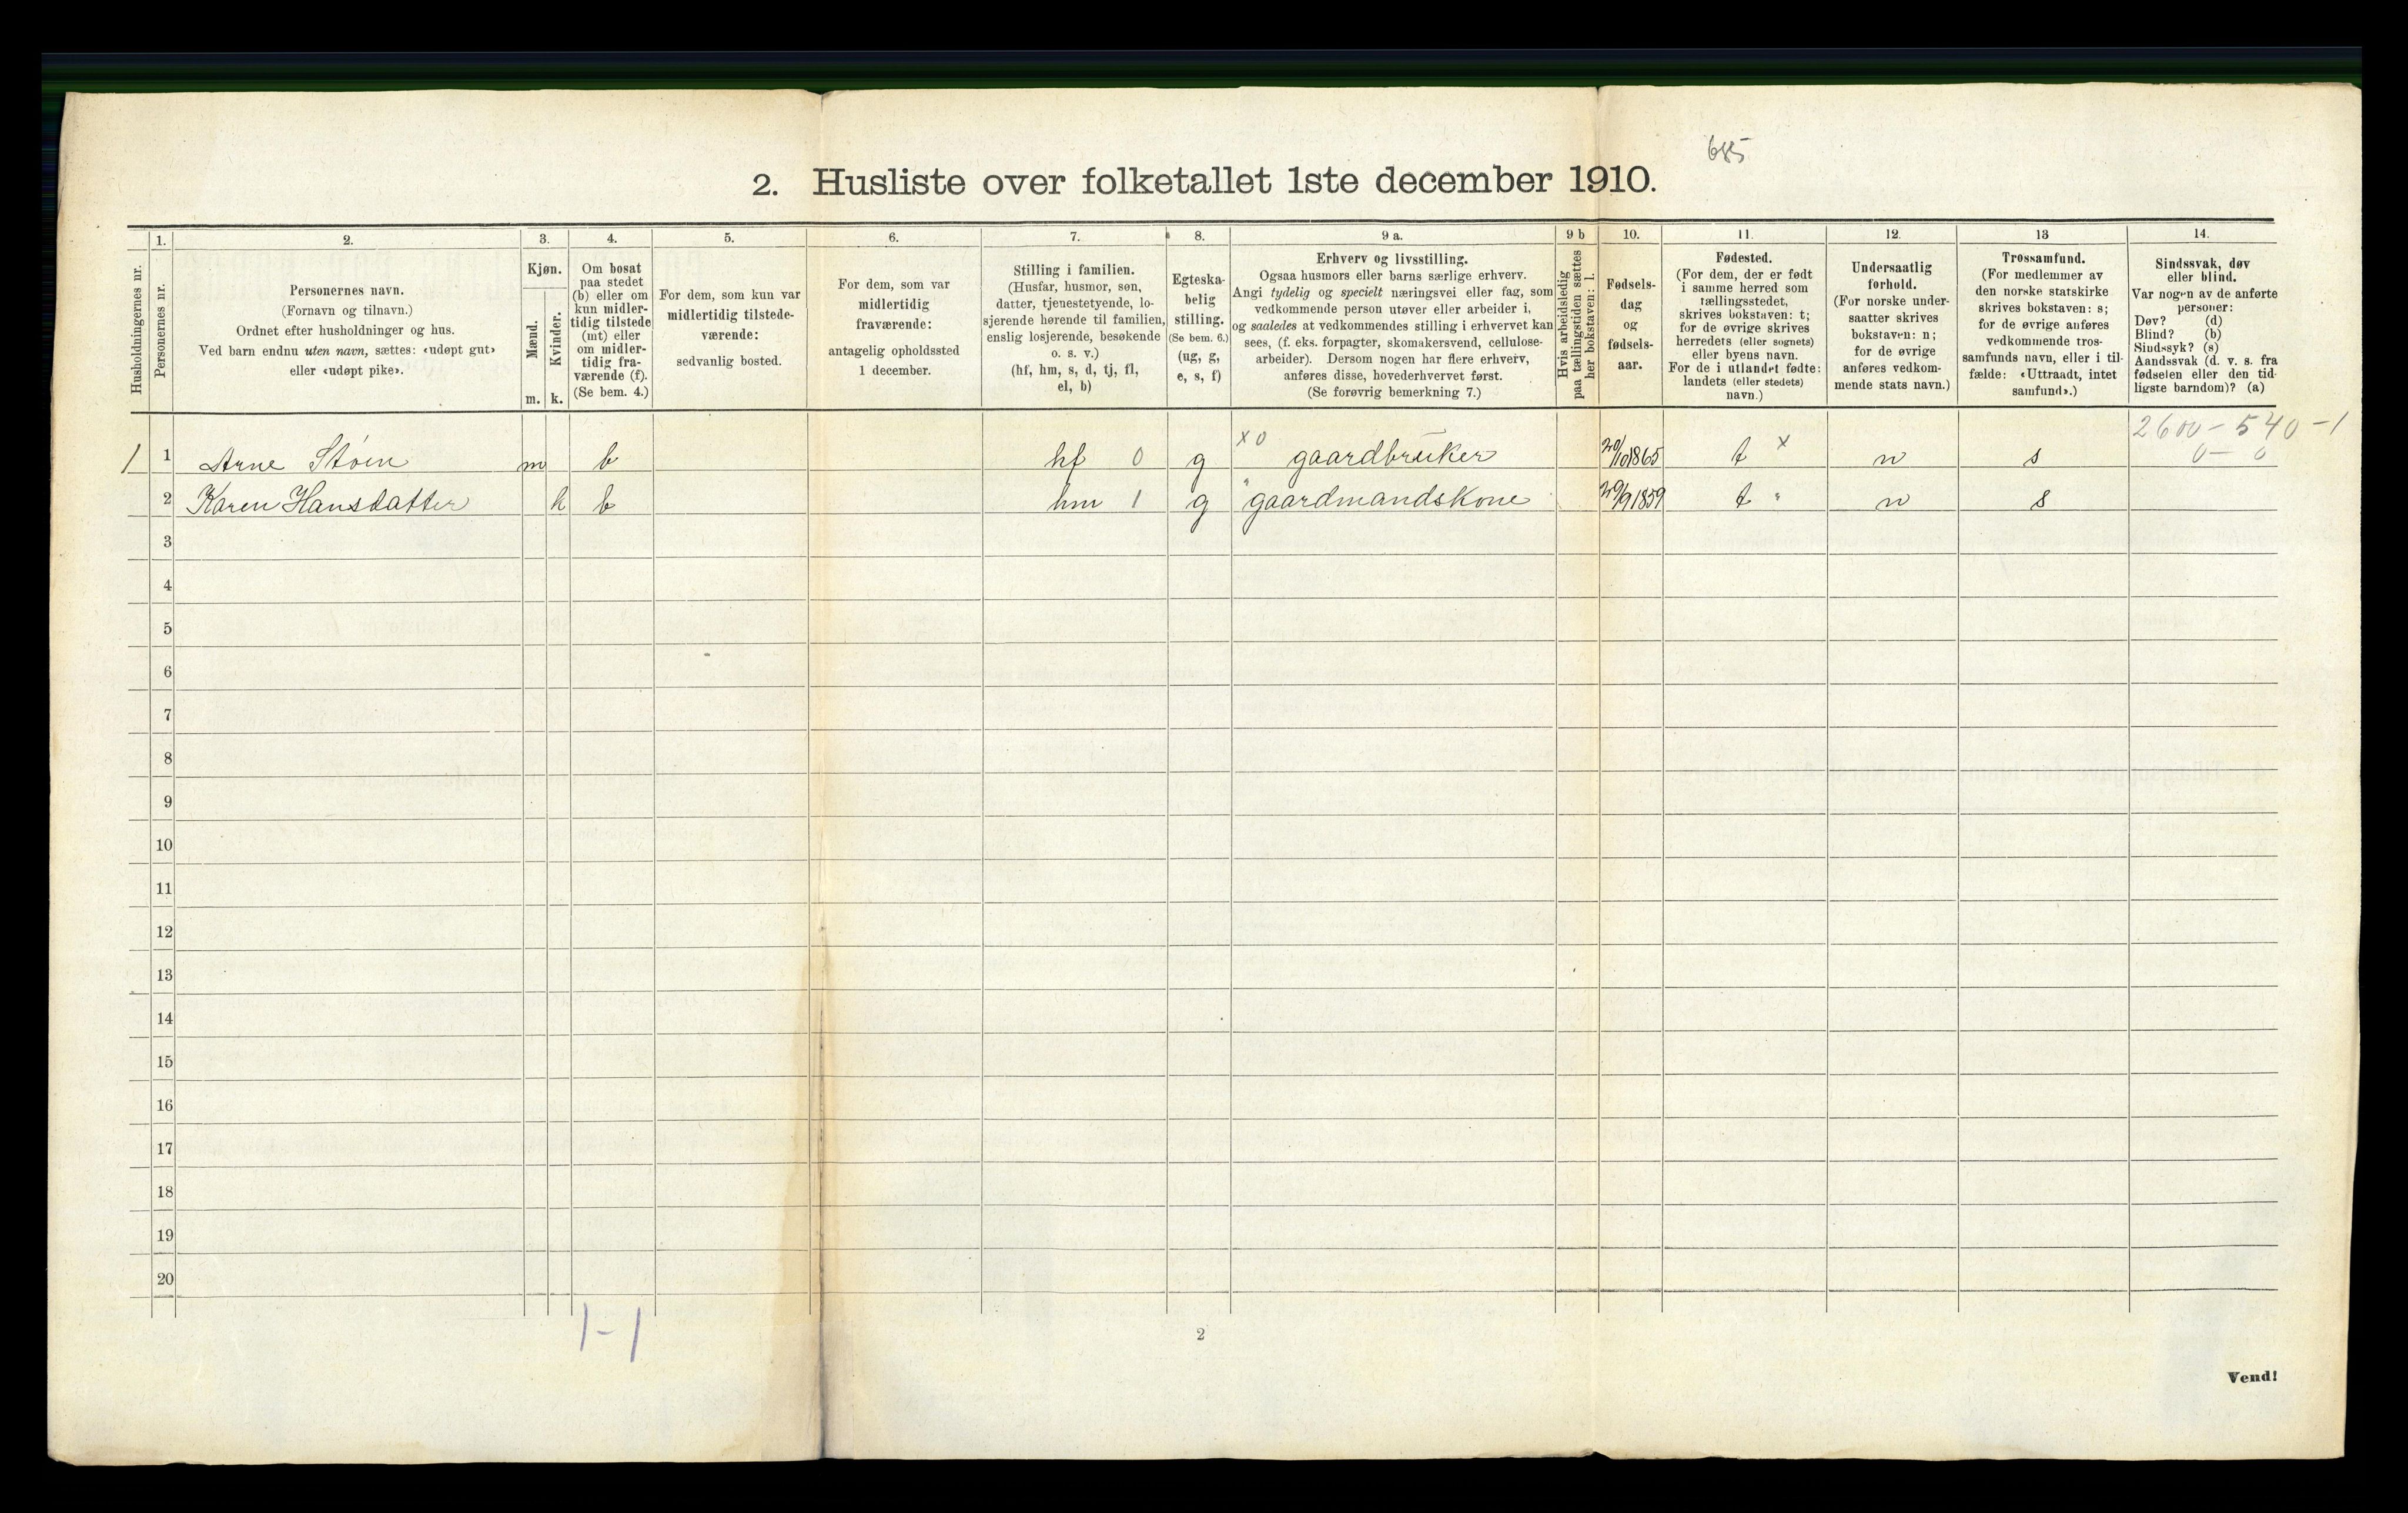 685
2. Husliste over folketallet 1ste december 1910.
Husholdningernes nr.
1.
Personernes nr.
2.
Personernes navn.
(Fornavn og tilnavn.)
Ordnet efter husholdninger og hus.
Ved barn endnu uten navn, sættes: «udøpt gut»
eller «udøpt pike».
3.
Kjøn.
Mænd.
Kvinder.
m. k.
4.
Om bosat
paa stedet
(b) eller om
kun midler-
tidig tilstede
(mt) eller
om midler-
tidig fra-
værende (f).
(Se bem. 4.)
5.
For dem, som kun var
midlertidig tilstede-
værende:
sedvanlig bosted.
6.
For dem, som var
midlertidig
fraværende:
antagelig opholdssted
1 december.
7.
Stilling i familien.
(Husfar, husmor, søn,
datter, tjenestetyende, lo-
sjerende hørende til familien,
enslig losjerende, besøkende
o. s. v.)
(hf, hm, s, d, tj, fl,
el, b)
8.
Egteska-
belig
stilling.
(Se bem. 6.)
(ug, g,
e, s, f)
9 a.
Erhverv og livsstilling.
Ogsaa husmors eller barns særlige erhverv.
Angi tydelig og specielt næringsvei eller fag, som
vedkommende person utøver eller arbeider i,
og saaledes at vedkommendes stilling i erhvervet kan
sees, (f. eks. forpagter, skomakersvend, cellulose-
arbeider). Dersom nogen har flere erhverv,
anføres disse, hovederhvervet først.
(Se forøvrig bemerkning 7.)
9 b
Hvis arbeidsledig
paa tællingstiden sættes
her bokstaven: l.
10.
Fødsels-
dag
og
fødsels-
aar.
11.
Fødested.
(For dem, der er født
i samme herred som
tællingsstedet,
skrives bokstaven: t;
for de øvrige skrives
herredets (eller sognets)
eller byens navn.
For de i utlandet fødte:
landets (eller stedets)
navn.)
12.
Undersaatlig
forhold.
(For norske under-
saatter skrives
bokstaven: n;
for de øvrige
anføres vedkom-
mende stats navn.)
13
Trossamfund.
(For medlemmer av
den norske statskirke
skrives bokstaven: s;
for de øvrige anføres
vedkommende tros-
samfunds navn, eller i til-
fælde: «Uttraadt, intet
samfund».)
14.
Sindssvak, døv
eller blind.
Var nogen av de anførte
personer:
Døv? (d)
Blind? (b)
Sindssyk? (s)
Aandssvak (d. v. s. fra
fødselen eller den tid-
ligste barndom)? (a)
2600 – 540 – 1
x 0 x 0 – 0
1 1 Arne Støin m b hf 0 g gaardbruker 20/10 1865 t n s
2 Karen Hansdatter k b hm 1 g " gaardmandskone 29/9 1859 t " n s
3
4
5
6
7
8
9
10
11
12
13
14
15
16
17
18
19
20
1 – 1
2
Vend!